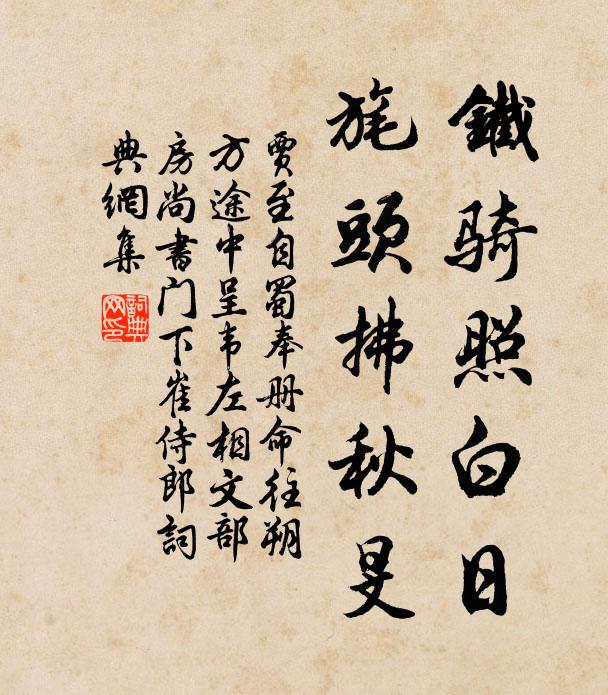 鐵騎照白日
旄頭拂秋旻
賈至自蜀奉册命往朔
方途中呈韦左相文部
房尚書门下崔侍郎詞
典網集
詞典
网印